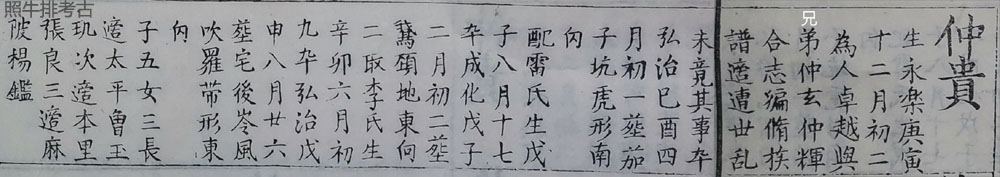 照牛排考古
仲貴
生永樂庚寅
十二月初二
為人卓越與
兄弟仲玄仲輝
合志編脩族
譜適遭世乱
未竟其事卒
弘治巳酉四
月初一塟茄
子坑虎形南
向
配雷氏生戊
子八月十七
卒成化戊子
二月初二塟
鵞頸地東向
二取李氏生
辛卯六月初
九卒弘治戊
申八月廿六
塟宅後岺風
吹羅帶形東
向
子五女三長
適太平曾玉
玑次適本里
張良三適麻
陂楊鑑